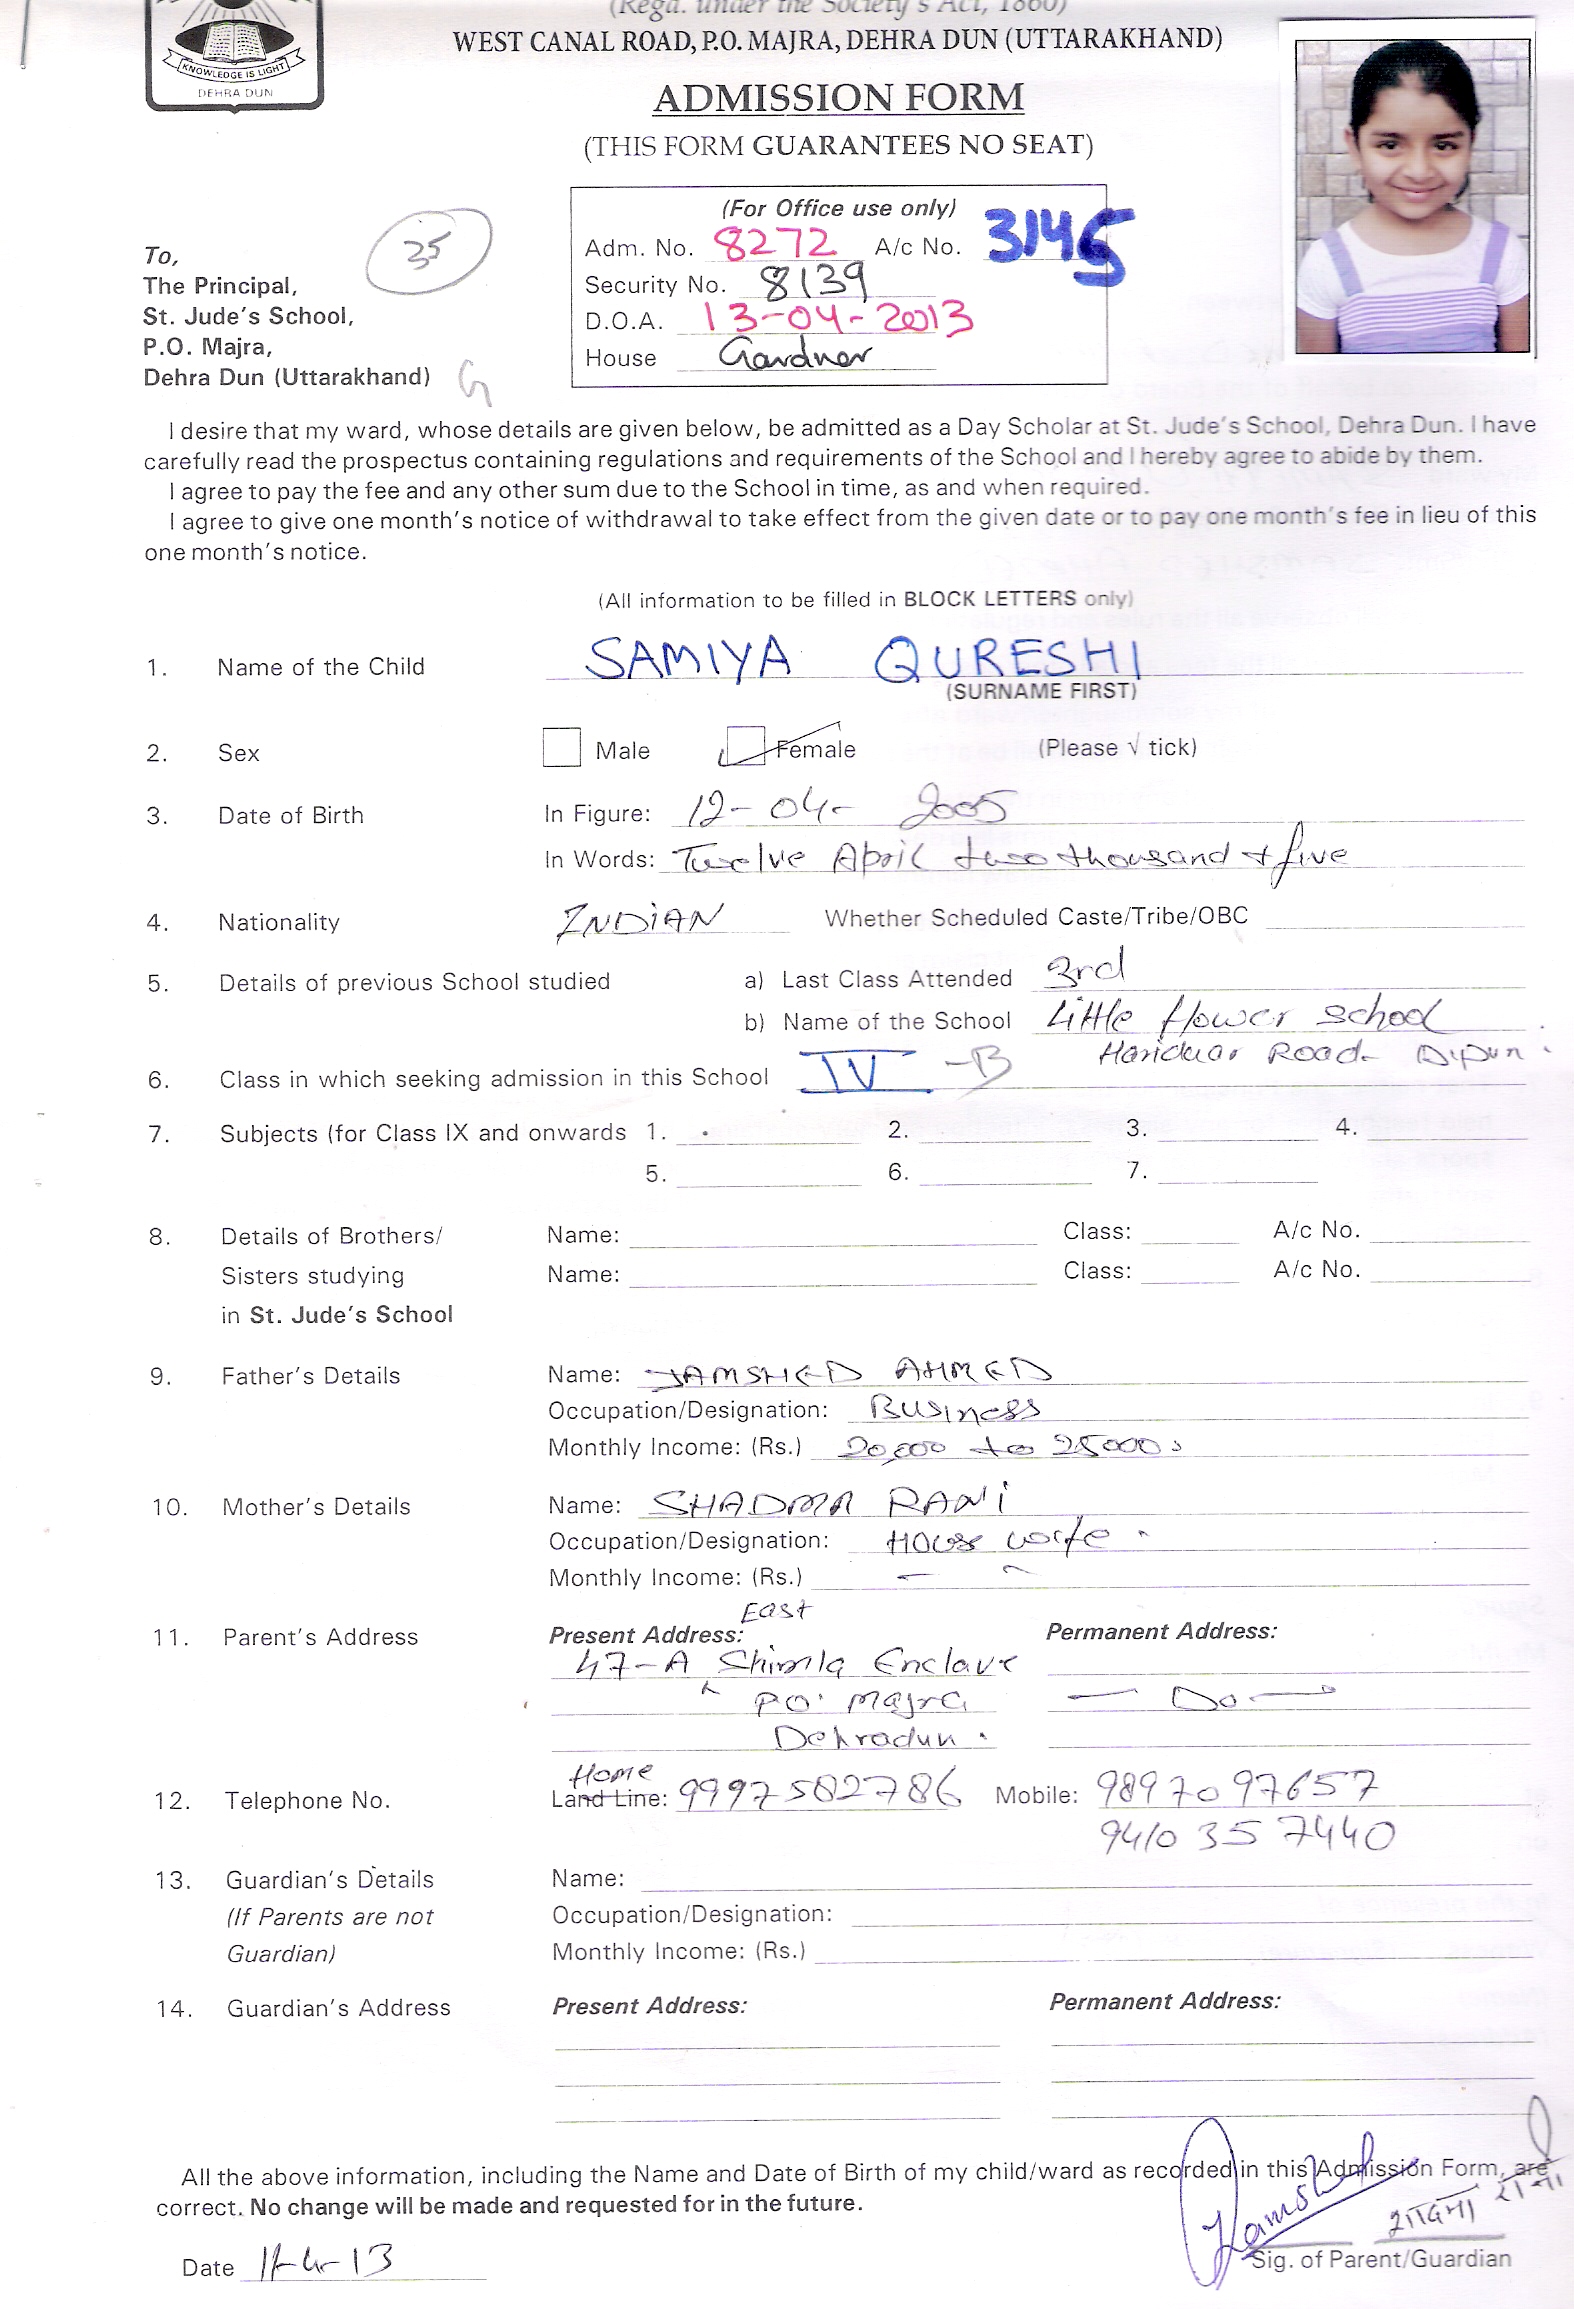 (Regd. under the Society's Act, 1860)
KNOWLEDGE IS LIGHT
DEHRA DUN
WEST CANAL ROAD, P.O. MAJRA, DEHRA DUN (UTTARAKHAND)
ADMISSION FORM
(THIS FORM GUARANTEES NO SEAT)
(For Office use only)
Adm. No. 8272 A/c No. 3145
Security No. 8139
D.O.A. 13-04-2013
House Gardner
35
To,
The Principal,
St. Jude's School,
P.O. Majra,
Dehra Dun (Uttarakhand) G
I desire that my ward, whose details are given below, be admitted as a Day Scholar at St. Jude's School, Dehra Dun. I have
carefully read the prospectus containing regulations and requirements of the School and I hereby agree to abide by them.
I agree to pay the fee and any other sum due to the School in time, as and when required.
I agree to give one month's notice of withdrawal to take effect from the given date or to pay one month's fee in lieu of this
one month's notice.
(All information to be filled in BLOCK LETTERS only)
1. Name of the Child SAMIYA QURESHI
(SURNAME FIRST)
2. Sex Male Female (Please √ tick)
3. Date of Birth In Figure: 12-04- 2005
In Words: Twelve April two thousand + five
4. Nationality INDIAN Whether Scheduled Caste/Tribe/OBC
5. Details of previous School studied a) Last Class Attended 3rd
b) Name of the School Little flower school
Haridwar Road D.Dun.
6. Class in which seeking admission in this School IV -B
7. Subjects (for Class IX and onwards 1. 2. 3. 4.
5. 6. 7.
8. Details of Brothers/ Name: Class: A/c No.
Sisters studying Name: Class: A/c No.
in St. Jude's School
9. Father's Details Name: JAMSHED AHMED
Occupation/Designation: Business
Monthly Income: (Rs.) 20,000 to 25000
10. Mother's Details Name: SHADMA RANI
Occupation/Designation: House wife.
Monthly Income: (Rs.) - -
East
11. Parent's Address Present Address: Permanent Address:
47-A Shimla Enclave
P.O. Majra — Do —
Dehradun.
Home
12. Telephone No. Land Line: 9997582786 Mobile: 9897097657
9410357440
13. Guardian's Details Name:
(If Parents are not Occupation/Designation:
Guardian) Monthly Income: (Rs.)
14. Guardian's Address Present Address: Permanent Address:
All the above information, including the Name and Date of Birth of my child/ward as recorded in this Admission Form, are
correct. No change will be made and requested for in the future.
Jamshed
Date 11-4-13 Sig. of Parent/Guardian